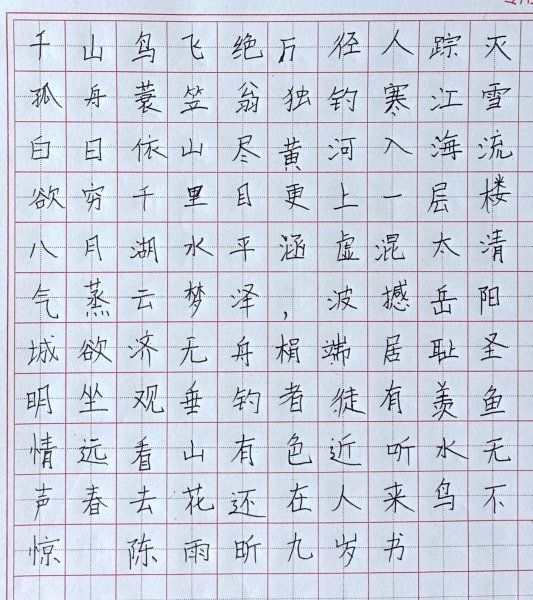 千山鸟飞绝万径人踪灭
孤舟蓑笠翁独钓寒江雪
白日依山尽黄河入海流
欲穷千里目更上一层楼
八月湖水平涵虚混太清
气蒸云梦泽，波撼岳阳
城欲济无舟楫端居耻圣
明坐观垂钓者徒有羡鱼
情远看山有色近听水无
声春去花还在人来鸟不
惊 陈雨昕九岁书